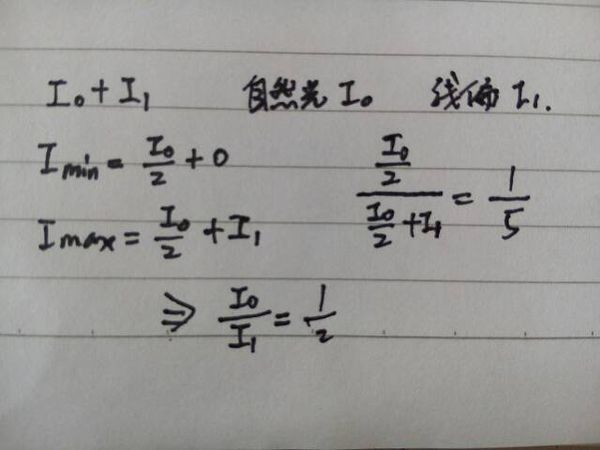 I₀ + I₁ 自然光 I₀ 线偏 I₁.
Imin = I₀/2 + 0
Imax = I₀/2 + I₁
(I₀/2)/(I₀/2 + I₁) = 1/5
⇒ I₀/I₁ = 1/2